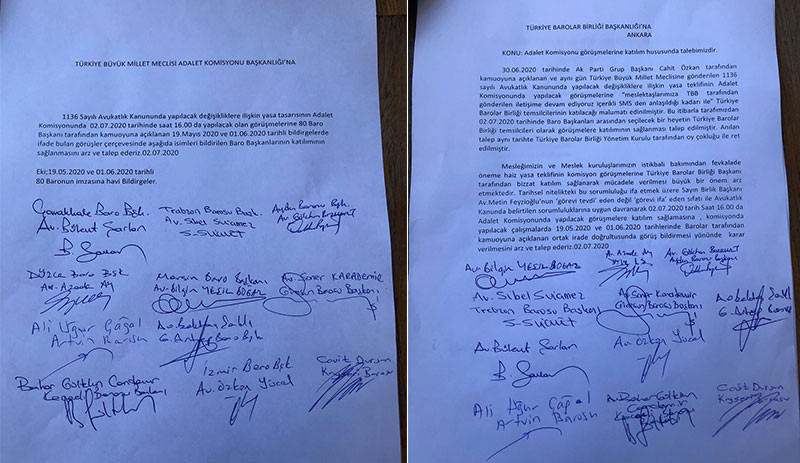 TÜRKİYE BÜYÜK MİLLET MECLİSİ ADALET KOMİSYONU BAŞKANLIĞI'NA
1136 Sayılı Avukatlık Kanununda yapılacak değişikliklere ilişkin yasa tasarısının Adalet
Komisyonunda 02.07.2020 tarihinde saat 16.00 da yapılacak olan görüşmelerine 80 Baro
Başkanı tarafından kamuoyuna açıklanan 19.Mayıs 2020 ve 01.06.2020 tarihli bildirgelerde
ifade bulan görüşler çerçevesinde aşağıda isimleri bildirilen Baro Başkanlarının katılımının
sağlanmasını arz ve talep ederiz.02.07.2020
Eki;19.05.2020 ve 01.06.2020 tarihli
80 Baronun imzasına havi Bildirgeler.
Çanakkale Baro Bşk.
Av. Bülent Şarlan
Trabzon Barosu Başk.
Av. Sibel Suiçmez
Aydın Barosu Bşk
Av. Gökhan Bozkurt
Düzce Baro Bşk
Av. Azade Ay
Mersin Baro Başkanı
Av. Bilgin YEŞİLBOĞAZ
Av. Soner KARADEMİR
Giresun Barosu Başkanı
Ali Uğur Çağal
Artvin Barosu
Av. Bektaş Şarklı
G. Antep Baro Bşk
Bahar Gültekin Candemir
Kocaeli Barosu Başkanı
İzmir Baro Bşk
Av. Özkan Yücel
Cavit Dursun
Kayseri Barosu
TÜRKİYE BAROLAR BİRLİĞİ BAŞKANLIĞI'NA
ANKARA
KONU: Adalet Komisyonu görüşmelerine katılım hususunda talebimizdir.
30.06.2020 tarihinde Ak Parti Grup Başkanı Cahit Özkan tarafından
kamuoyuna açıklanan ve aynı gün Türkiye Büyük Millet Meclisine gönderilen 1136
sayılı Avukatlık Kanununda yapılacak değişikliklere ilişkin yasa teklifinin Adalet
Komisyonunda yapılacak görüşmelerine "meslektaşlarımıza TBB tarafından
gönderilen iletişime devam ediyoruz içerikli SMS den anlaşıldığı kadarı ile" Türkiye
Barolar Birliği temsilcilerinin katılacağı malumatı edinilmiştir. Bu itibarla tarafımızdan
02.07.2020 tarihinde Baro Başkanları arasından seçilecek bir heyetin Türkiye Barolar
Birliği temsilcileri olarak görüşmelere katılımının sağlanması talep edilmiştir. Anılan
talep aynı tarihte Türkiye Barolar Birliği Yönetim Kurulu tarafından oy çokluğu ile ret
edilmiştir.
Mesleğimizin ve Meslek kuruluşlarımızın istikbali bakımından fevkalade
öneme haiz yasa teklifinin komisyon görüşmelerine Türkiye Barolar Birliği Başkanı
tarafından bizzat katılım sağlanarak mücadele verilmesi büyük bir önem arz
etmektedir. Tarihsel nitelikteki bu sorumluluğu ifa etmek üzere Sayın Birlik Başkanı
Av.Metin Feyzioğlu'nun 'görevi tevdi' eden değil 'görevi ifa' eden sıfatı ile Avukatlık
Kanunda belirtilen sorumluluklarına uygun davranarak 02.07.2020 tarih Saat 16.00 da
Adalet Komisyonunda yapılacak görüşmelere katılım sağlamasına , komisyonda
yapılacak çalışmalarda 19.05.2020 ve 01.06.2020 tarihlerinde Barolar tarafından
kamuoyuna açıklanan ortak irade doğrultusunda görüş bildirmesi yönünde karar
verilmesini arz ve talep ederiz.02.07.2020
Av. Bilgin YEŞİLBOĞAZ
Av. Azade Ay
Av. Gökhan Bozkurt
Aydın Barosu Başkanı
Av. Sibel Suiçmez
Trabzon Barosu Başkanı
Av. Soner Karademir
Giresun Barosu Başkanı
Av. Bektaş Şarklı
Av. Bülent Şarlan
Av. Özkan Yücel
Ali Uğur Çağal
Artvin Barosu
Av. Bahar Gültekin
Candemir
Cavit Dursun
Kayseri Barosu